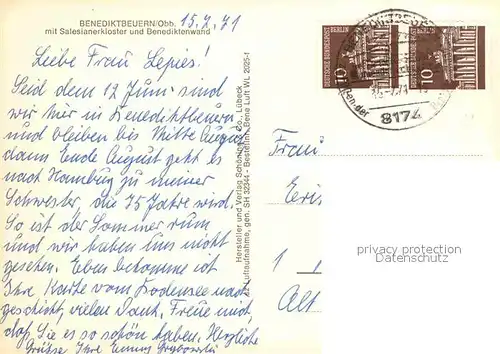 BENEDIKTBEUERN/Obb.
mit Salesianerkloster und Benediktenwand
15.7.71
Liebe Frau Lepies!
Seid dem 12 Juni sind
wir hier in Benediktbeuern
und bleiben bis Mitte August
dann Ende August geht es
nach Hamburg zu meiner
Schwester, die 75 Jahre wird.
So ist der Sommer rum
und wir haben uns nicht
gesehen. Eben bekomme ich
Ihre Karte vom Bodensee nach
geschickt, vielen Dank. Freue mich,
daß Sie es so schön haben. Herzliche
Grüsse Ihre Emmy
Hersteller und Verlag Schöning & Co., Lübeck
Luftaufnahme, gen. SH 32344 - Bestellnr. Bene Luft WL 2025-1
DEUTSCHE BUNDESPOST BERLIN
10
10
8174
Frau
Eris
1
Alt
privacy protection
VENDITOR